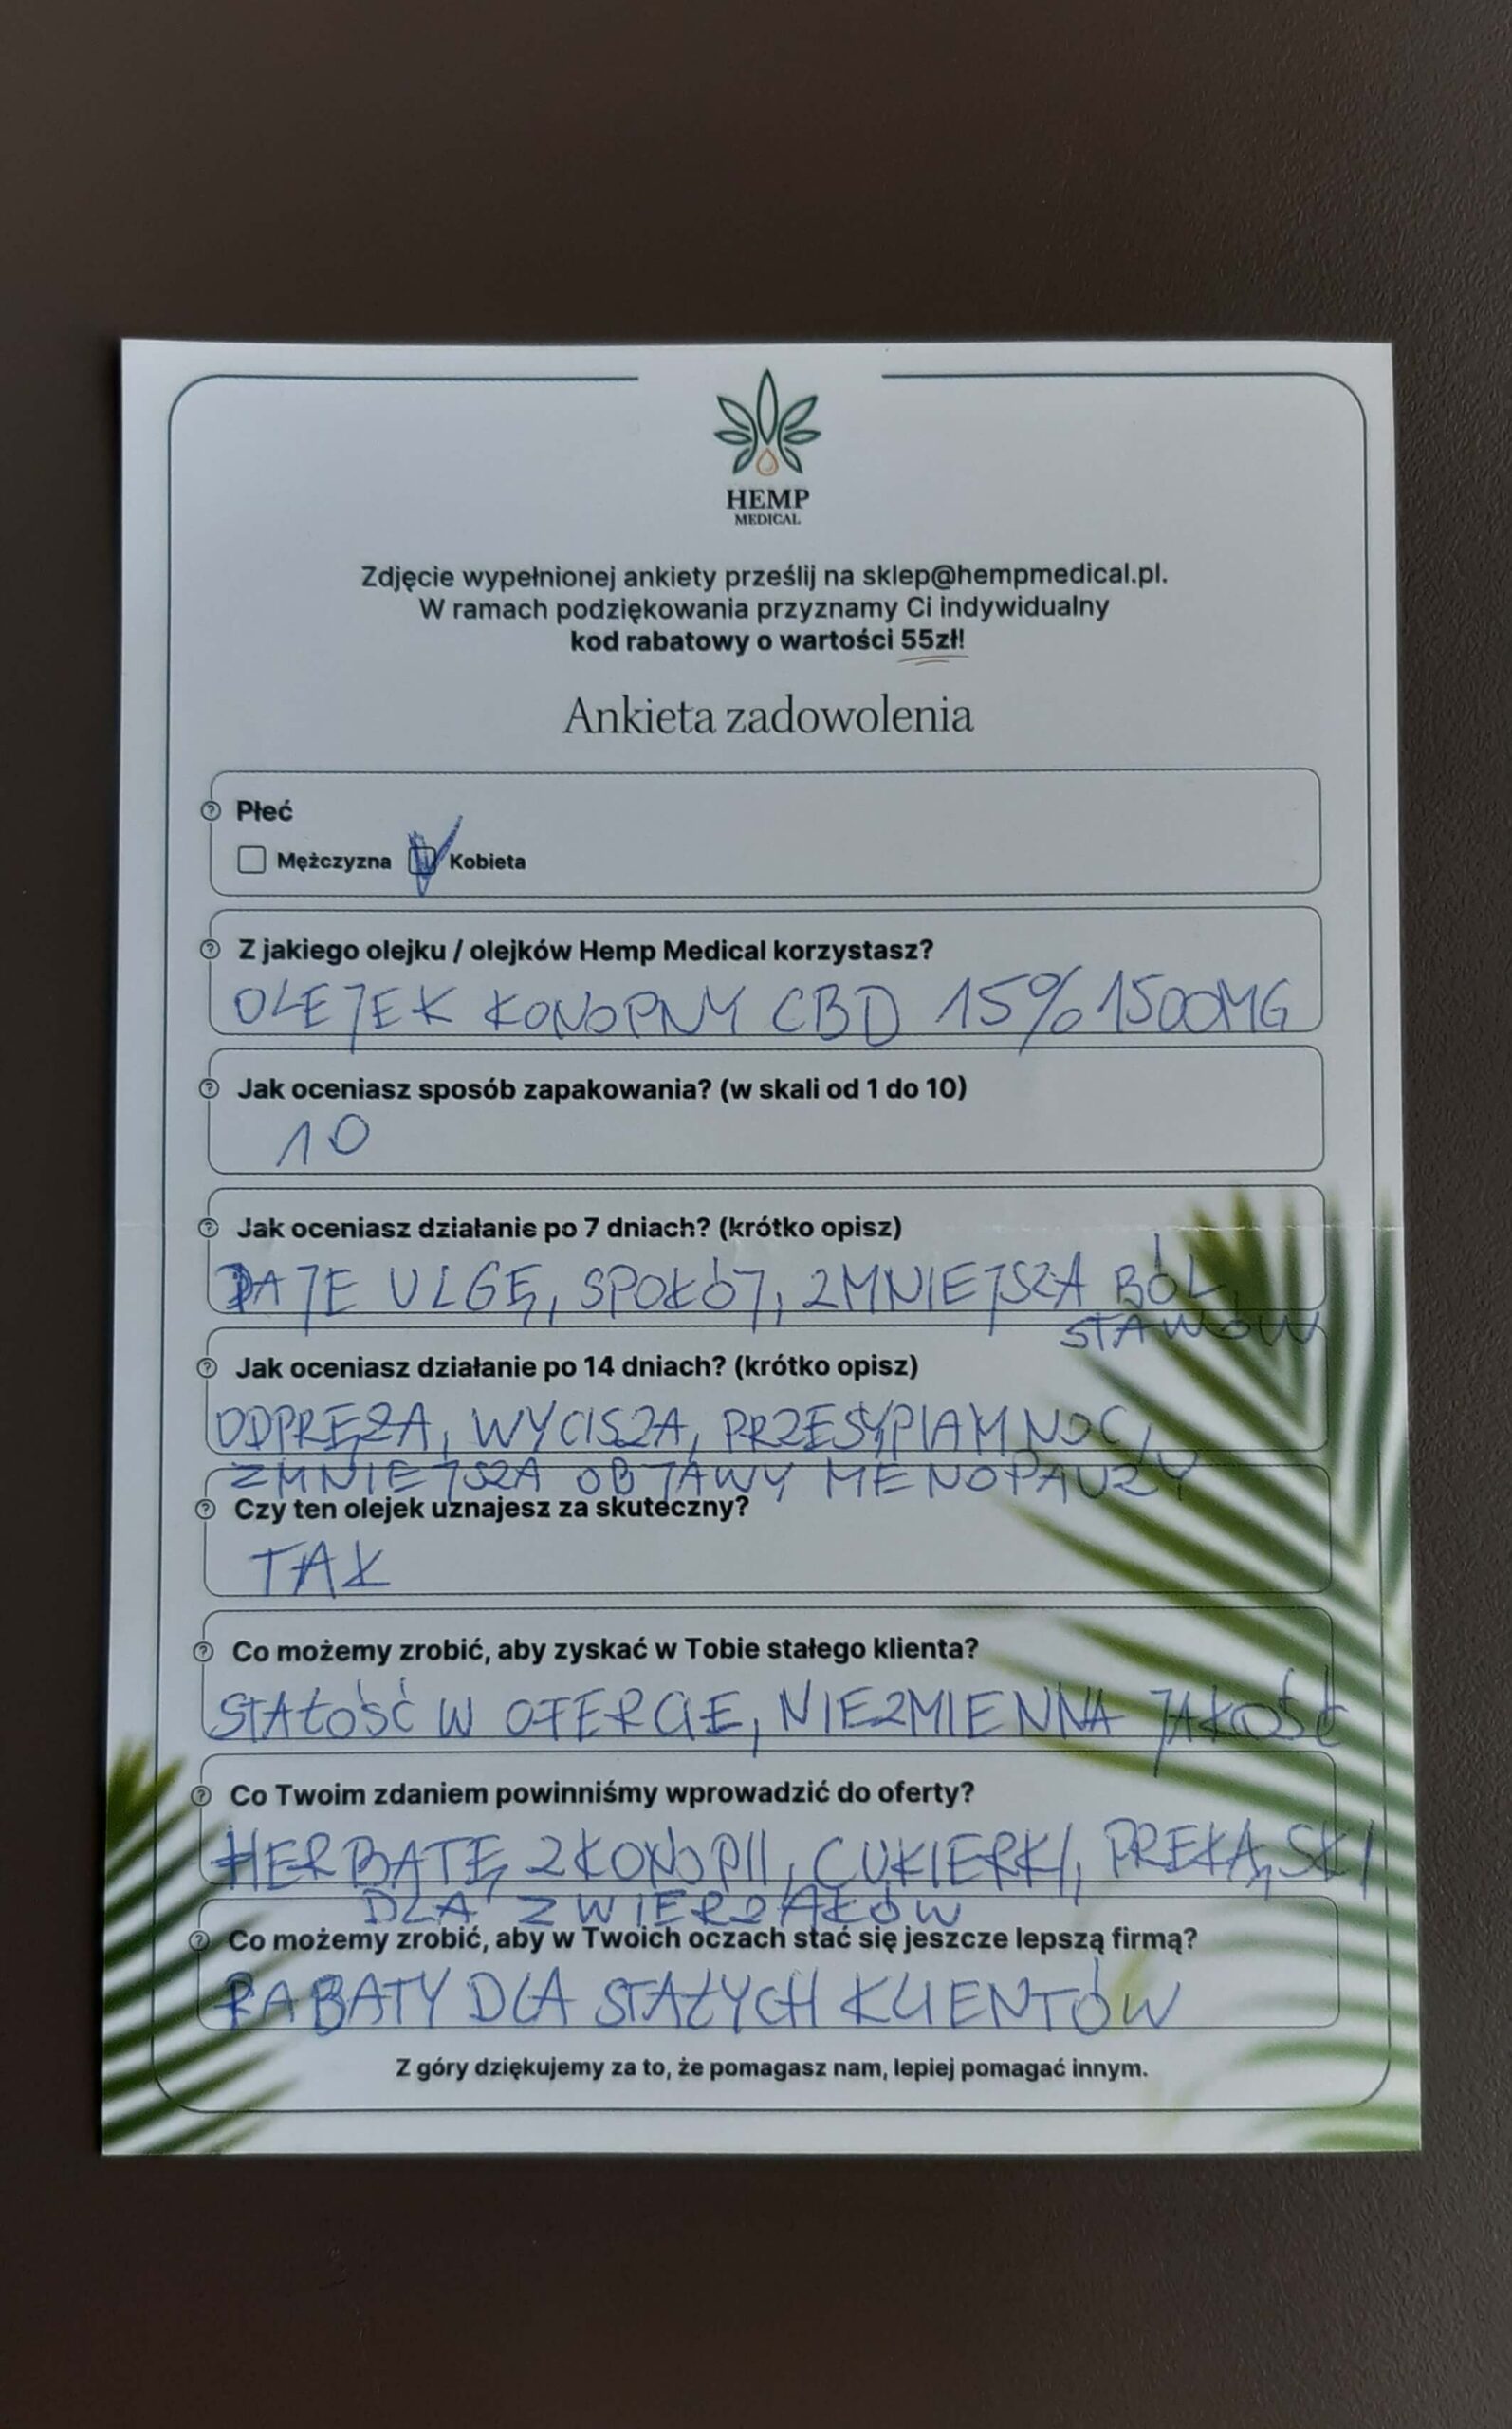 HEMP
MEDICAL
Zdjęcie wypełnionej ankiety prześlij na sklep@hempmedical.pl.
W ramach podziękowania przyznamy Ci indywidualny
kod rabatowy o wartości 55zł!
Ankieta zadowolenia
Płeć
Mężczyzna Kobieta
Z jakiego olejku / olejków Hemp Medical korzystasz?
OLEJEK KONOPNY CBD 15% 1500MG
Jak oceniasz sposób zapakowania? (w skali od 1 do 10)
10
Jak oceniasz działanie po 7 dniach? (krótko opisz)
DAJE ULGĘ, SPOKÓJ, ZMNIEJSZA BÓL
STAWÓW
Jak oceniasz działanie po 14 dniach? (krótko opisz)
ODPRĘŻA, WYCISZA, PRZESYPIAM NOC,
ZMNIEJSZA OBJAWY MENOPAUZY
Czy ten olejek uznajesz za skuteczny?
TAK
Co możemy zrobić, aby zyskać w Tobie stałego klienta?
STAŁOŚĆ W OFERCIE, NIEZMIENNA JAKOŚĆ
Co Twoim zdaniem powinniśmy wprowadzić do oferty?
HERBATĘ Z KONOPII, CUKIERKI, PREKĄSKI
DLA ZWIERZAKÓW
Co możemy zrobić, aby w Twoich oczach stać się jeszcze lepszą firmą?
RABATY DLA STAŁYCH KLIENTÓW
Z góry dziękujemy za to, że pomagasz nam, lepiej pomagać innym.